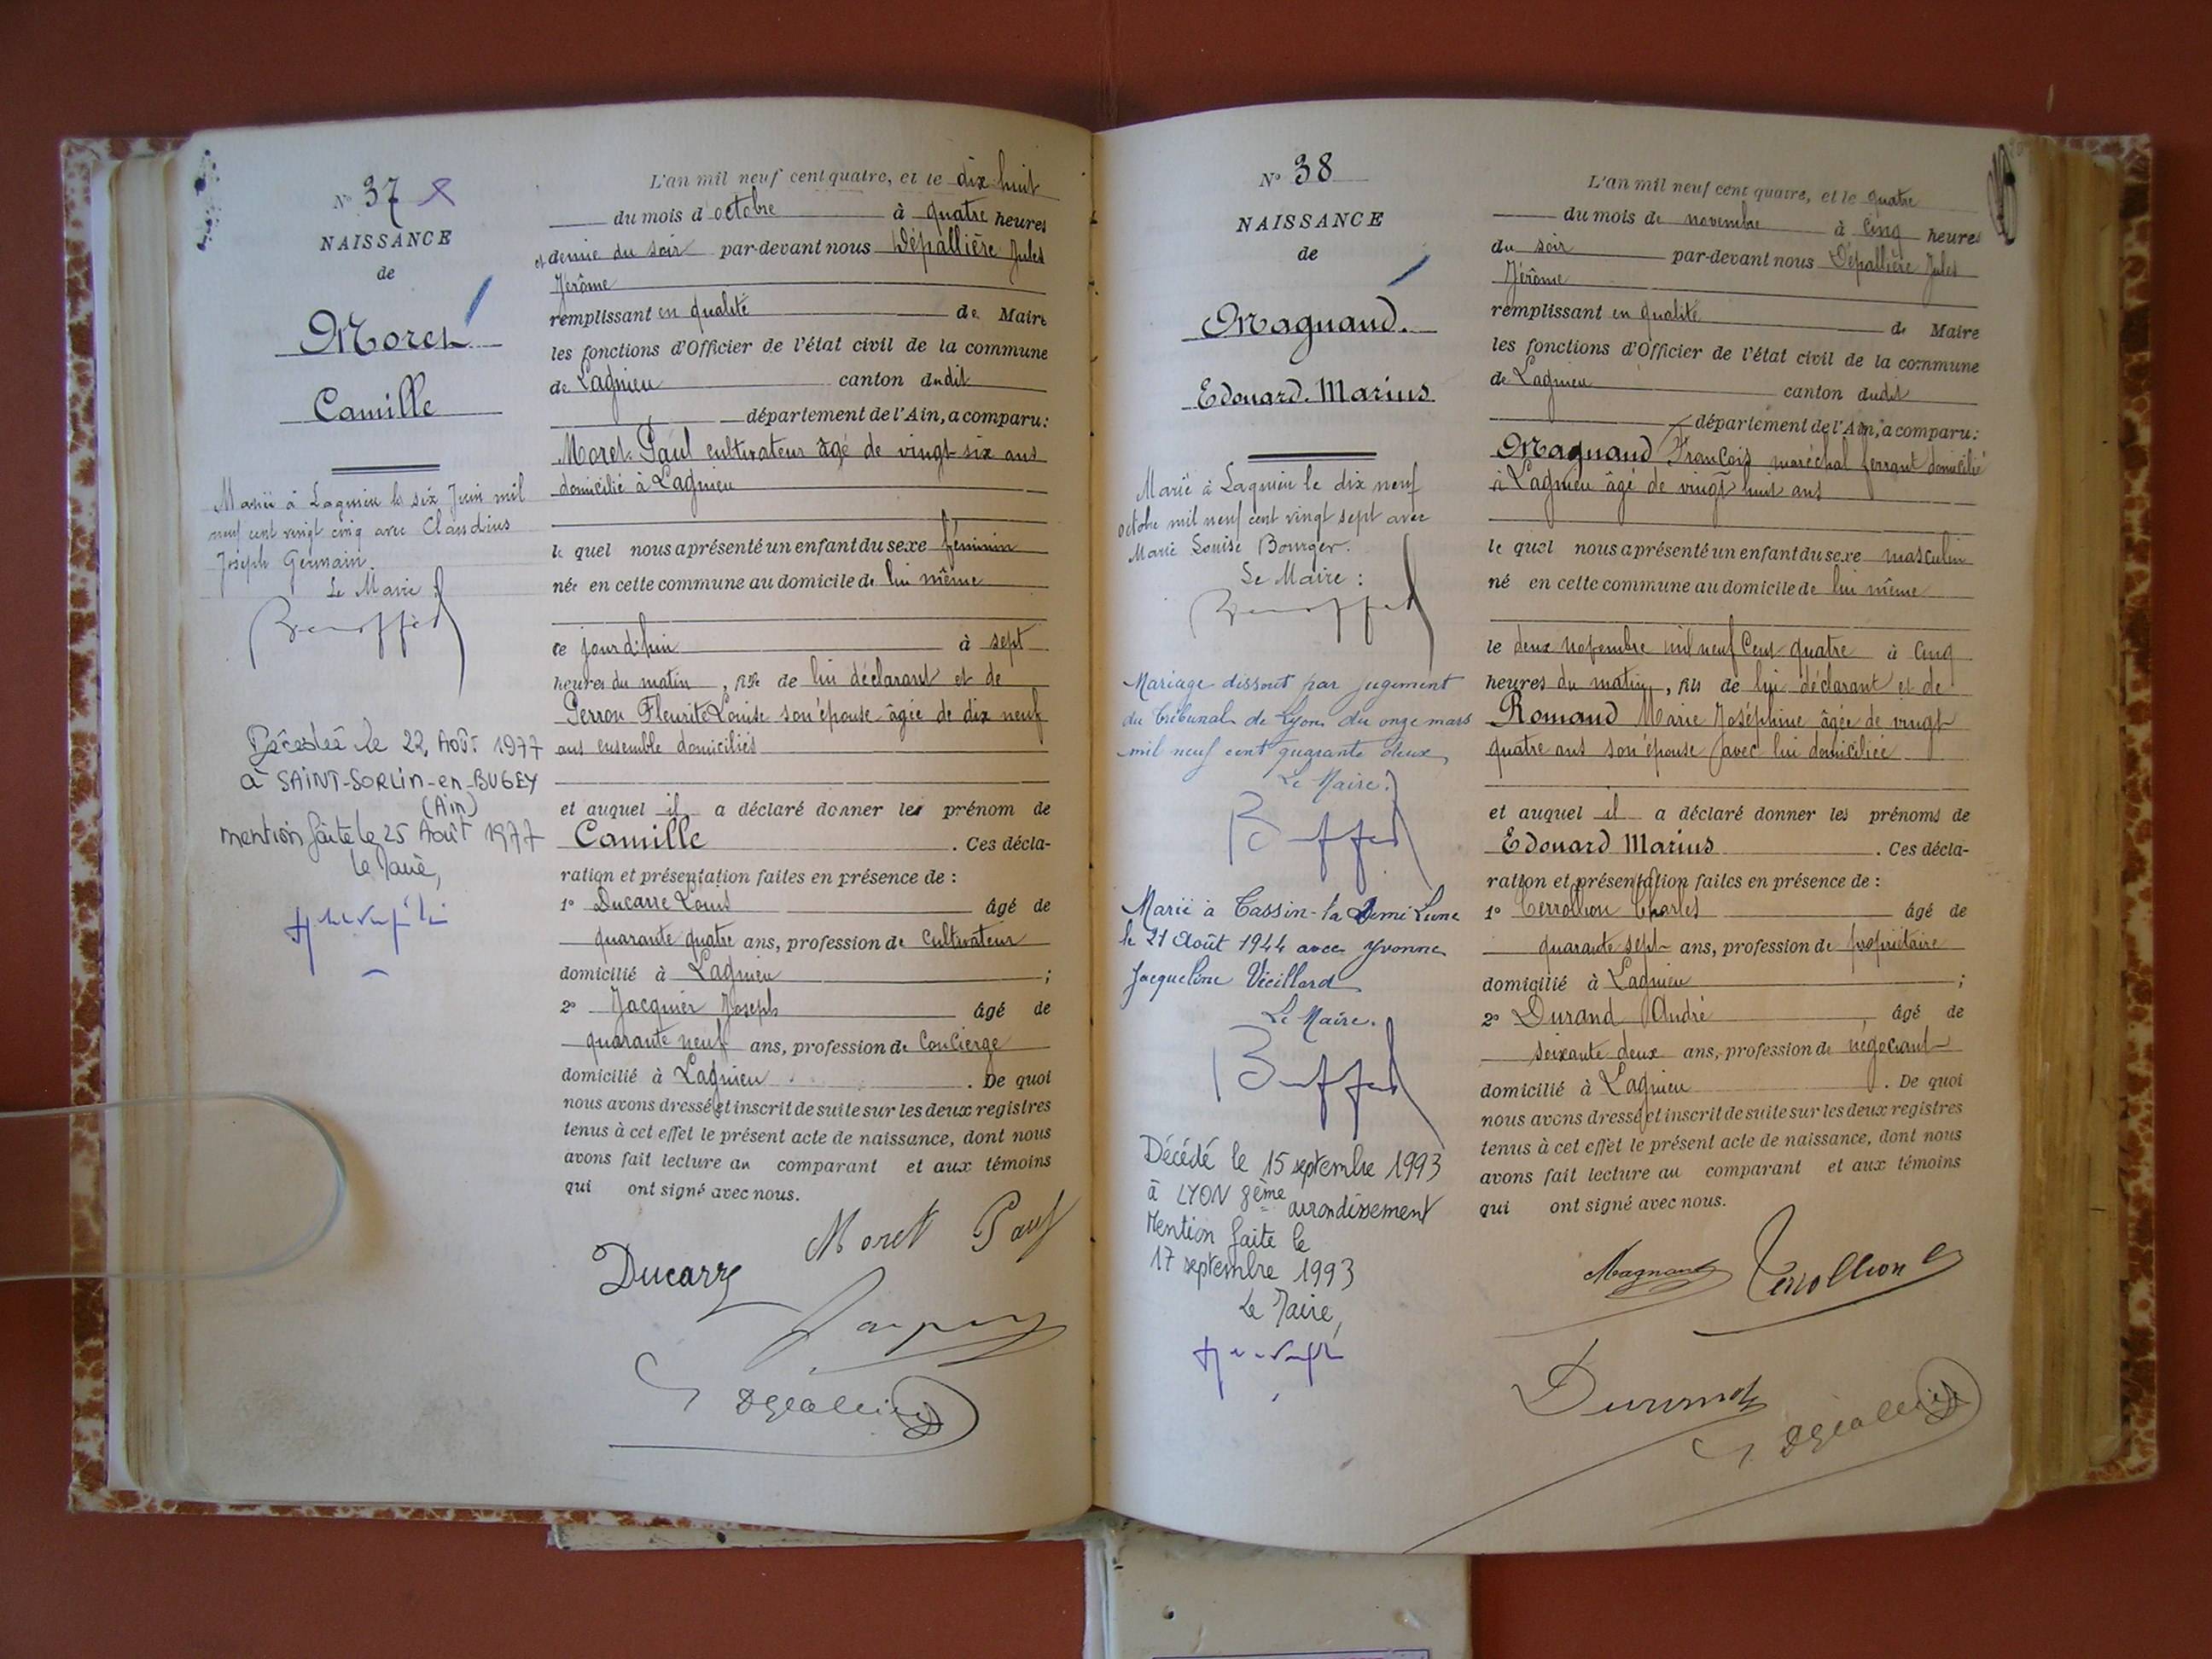 N° 37
NAISSANCE
de
Moret
Camille
Mariée à Lagnieu le six Juin mil
neuf cent vingt cinq avec Claudius
Joseph Germain.
Le Maire :
Décédée le 22 Août 1977
à SAINT-SORLIN-en-BUGEY
(Ain)
mention faite le 25 Août 1977
le Maire,
L'an mil neuf cent quatre, et le dix huit
du mois d'octobre à quatre heures
et demie du soir par-devant nous Dépallière Jules
Jérôme
remplissant en qualité de Maire
les fonctions d'Officier de l'état civil de la commune
de Lagnieu canton dudit
département de l'Ain, a comparu:
Moret Paul cultivateur âgé de vingt-six ans
domicilié à Lagnieu
le quel nous a présenté un enfant du sexe féminin
née en cette commune au domicile de lui même
ce jourd'hui à sept
heures du matin, fille de lui déclarant et de
Perron Fleurite Louise son épouse âgée de dix neuf
ans ensemble domiciliés
et auquel il a déclaré donner les prénom de
Camille. Ces décla-
ration et présentation faites en présence de :
1° Ducarre Louis âgé de
quarante quatre ans, profession de cultivateur
domicilié à Lagnieu ;
2° Jacquier Joseph âgé de
quarante neuf ans, profession de Concierge
domicilié à Lagnieu. De quoi
nous avons dressé et inscrit de suite sur les deux registres
tenus à cet effet le présent acte de naissance, dont nous
avons fait lecture au comparant et aux témoins
qui ont signé avec nous.
Moret Paul
Ducarre
N° 38
NAISSANCE
de
Magnand.
Edouard Marius
Marié à Lagnieu le dix neuf
octobre mil neuf cent vingt sept avec
Marie Louise Bourger.
Le Maire :
Mariage dissout par jugement
du Tribunal de Lyon du onze mars
mil neuf cent quarante deux
Le Maire.
Buffet
Marié à Tassin-la Demi Lune
le 21 Août 1944 avec Yvonne
Jacqueline Vieillard
Le Maire.
Buffet
Décédé le 15 septembre 1993
à LYON 8ème arrondissement
Mention faite le
17 septembre 1993
Le Maire,
L'an mil neuf cent quatre, et le quatre
du mois de novembre à cinq heures
du soir par-devant nous Dépallière Jules
Jérôme
remplissant en qualité de Maire
les fonctions d'Officier de l'état civil de la commune
de Lagnieu canton dudit
département de l'Ain, a comparu:
Magnand François maréchal ferrant domicilié
à Lagnieu âgé de vingt huit ans
le quel nous a présenté un enfant du sexe masculin
né en cette commune au domicile de lui même
le deux novembre mil neuf cent quatre à cinq
heures du matin, fils de lui déclarant et de
Romand Marie Joséphine âgée de vingt-
quatre ans son épouse avec lui domiciliée
et auquel il a déclaré donner les prénoms de
Edouard Marius. Ces décla-
ration et présentation faites en présence de :
1° Terrollion Charles âgé de
quarante sept ans, profession de propriétaire
domicilié à Lagnieu ;
2° Durand André âgé de
soixante deux ans, profession de négociant
domicilié à Lagnieu. De quoi
nous avons dressé et inscrit de suite sur les deux registres
tenus à cet effet le présent acte de naissance, dont nous
avons fait lecture au comparant et aux témoins
qui ont signé avec nous.
Magnand Terrollion C
Durand